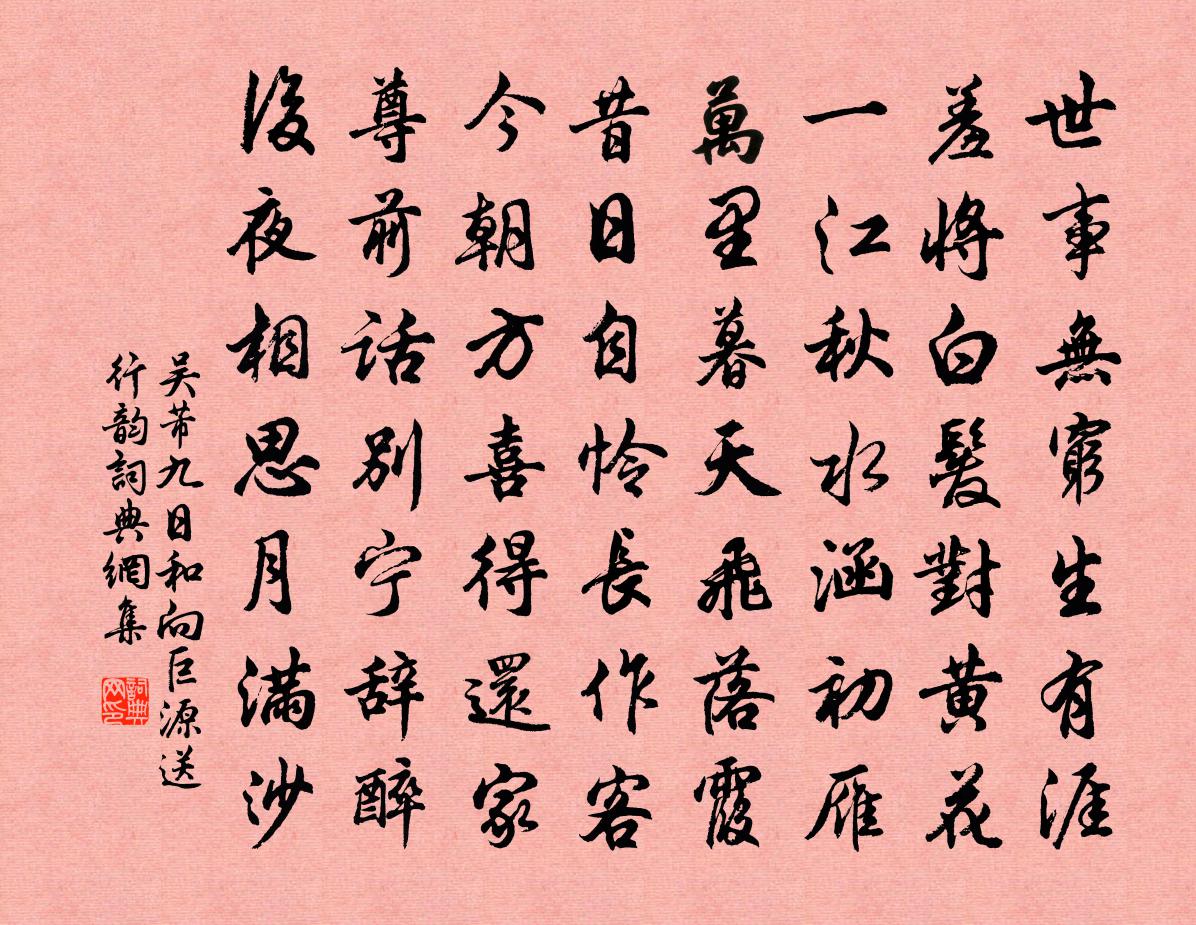 世事無窮生有涯
羞將白髮對黃花
一江秋水涵初雁
萬里暮天飛落霞
昔日自怜長作客
今朝方喜得還家
尊前話別宁辞醉
後夜相思月满沙
吴芾九日和向巨源送
行韵詞典網集
詞典网印